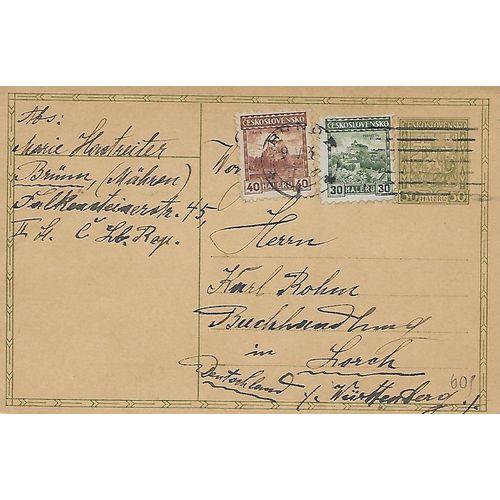 Abs:
Marie Hanreiter
Brünn, (Mähren)
Falkensteinerstr. 45,
II St. Č Lb. Rep.
ČESKOSLOVENSKO
40 HALÉŘŮ 40
ČESKOSLOVENSKO
30 HALÉŘŮ 30
ČESKOSLOVENSKO
50 HALÉŘŮ 50
Herrn
Karl Rohm
Buchhandlung
in Lorch
Deutschland /. Württemberg./.
601